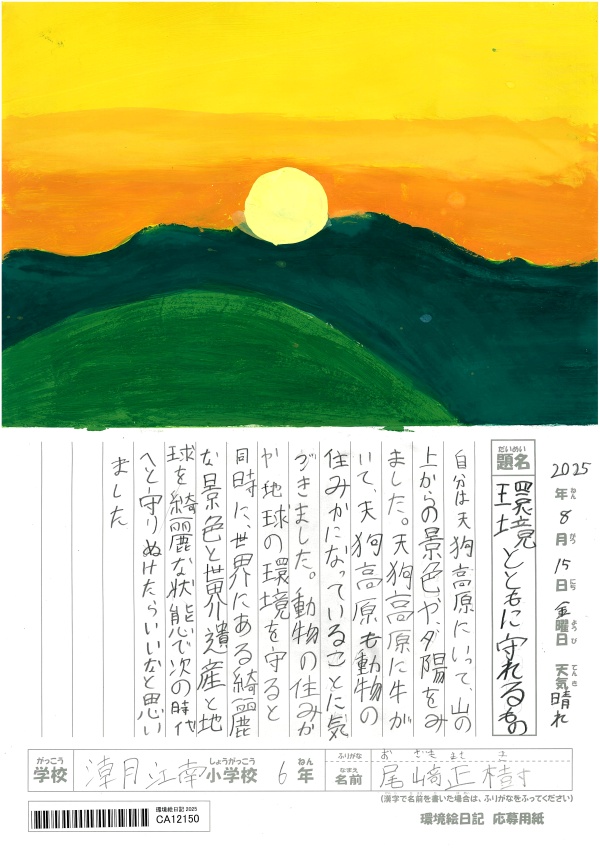 2025年8月15日金曜日天気晴れ
ねん がつ にち ようび てんき
だいめい
題名
環境とともに守れるもの
自分は天狗高原にいって、山の
上からの景色や、夕陽をみ
ました。天狗高原に牛が
いて、天狗高原も動物の
住みかになっていることに気
づきました。動物の住みか
や地球の環境を守ると
同時に、世界にある綺麗
な景色と世界遺産と地
球を綺麗な状態で次の時代
へと守りぬけたらいいなと思い
ました
がっこう しょうがっこう ねん
学校 江南小学校 6年
ふりがな お ざき まさ き
なまえ
名前 尾﨑正樹
(漢字で名前を書いた場合は、ふりがなをふってください)
環境絵日記 2025
CA12150
環境絵日記 応募用紙